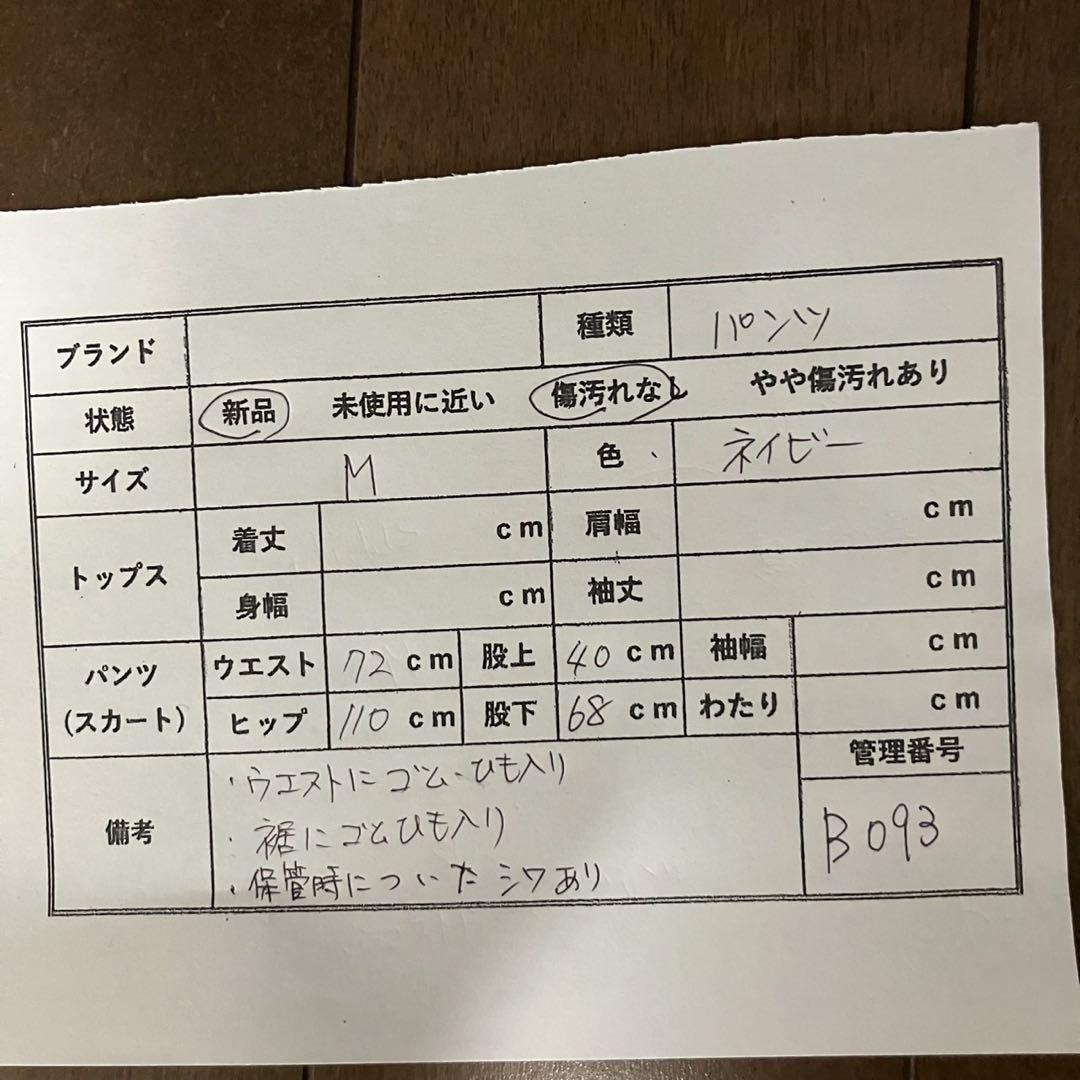 ブランド 種類 パンツ
状態 新品 未使用に近い 傷汚れなし やや傷汚れあり
サイズ M 色 ネイビー
トップス 着丈 cm 肩幅 cm
身幅 cm 袖丈 cm
パンツ (スカート) ウエスト 72 cm 股上 40 cm 袖幅 cm
ヒップ 110 cm 股下 68 cm わたり cm
備考 管理番号
・ウエストにゴム・ひも入り
・裾にゴムひも入り
・保管時についたシワあり
B093